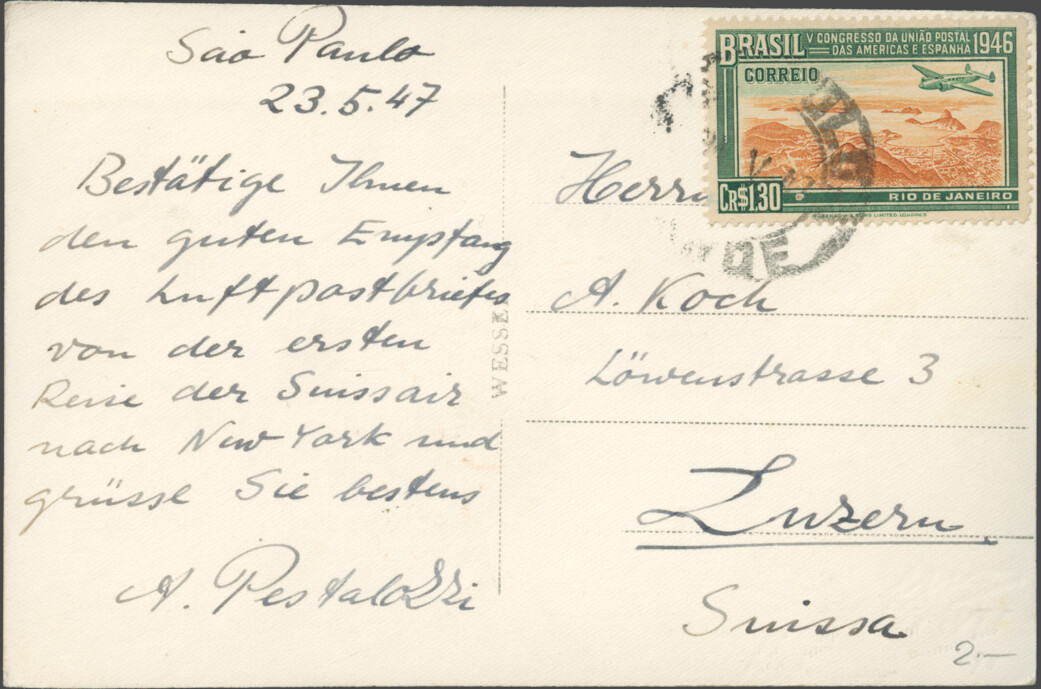 São Paulo
23.5.47
Bestätige Ihnen
den guten Empfang
des Luftpostbriefes
von der ersten
Reise der Suissair
nach New York und
grüsse Sie bestens
A. Pestalozzi
WESSEL
BRASIL V CONGRESSO DA UNIÃO POSTAL DAS AMERICAS E ESPANHA 1946
CORREIO
CR$1.30
RIO DE JANEIRO
Herrn
A. Koch
Löwenstrasse 3
Luzern
Suissa
2.–